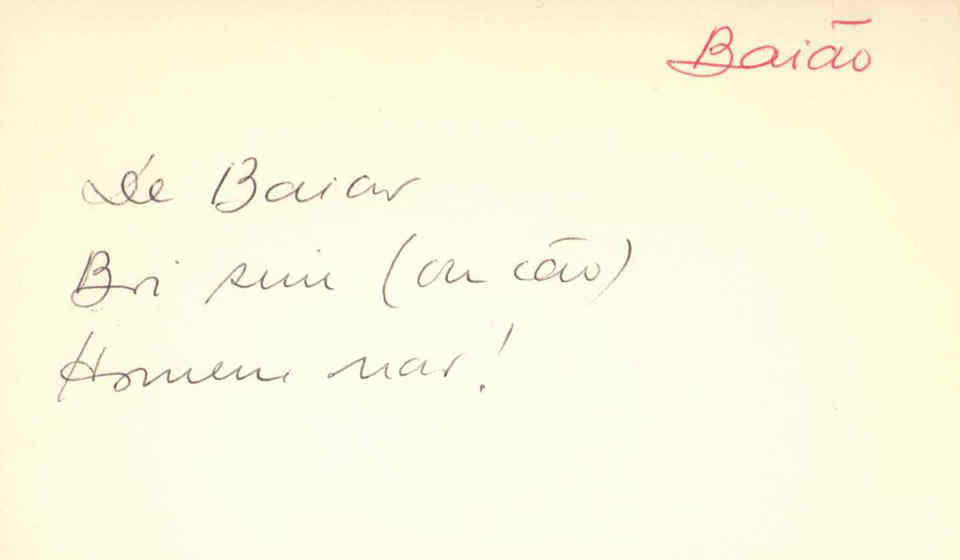 Baião
De Baiao
Boi sim (ou cão)
Homem nao!